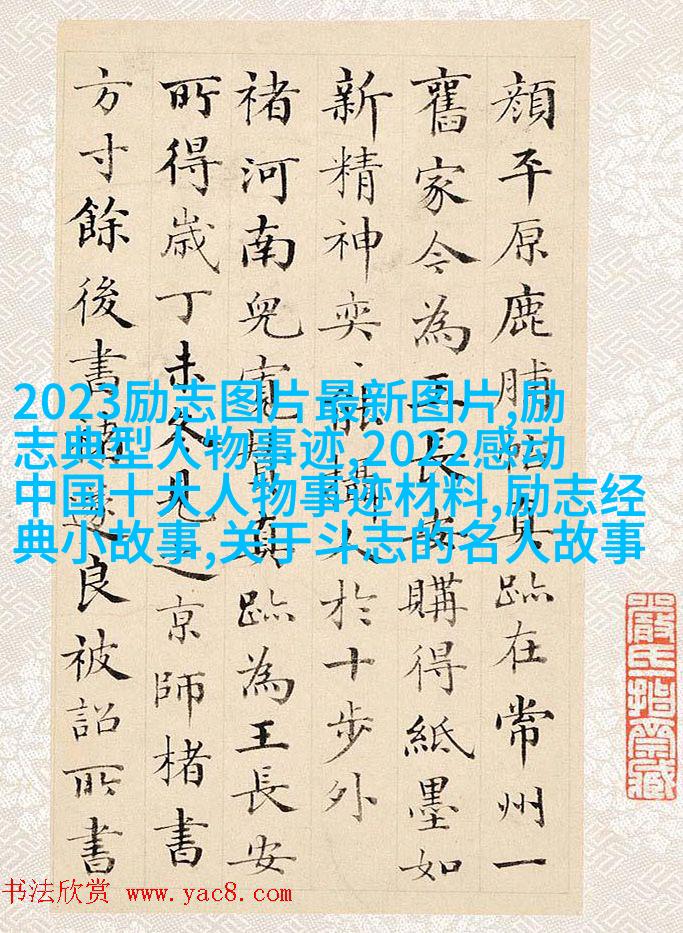 顏平原鹿脯帖真跡在常州一
舊家今為王長安購得紙墨如
新精神奕、能攝人於十步外
褚河南兒寬贊真跡為王長安
所得歲丁未冬見之京師楮書
方寸餘後書遂良被詔所書
2023励志图片最新图片,励
志典型人物事迹 2022感动
中国十大人物事迹材料,励志经
典小故事,关于斗志的名人故事
书法欣赏 www.yac8.com